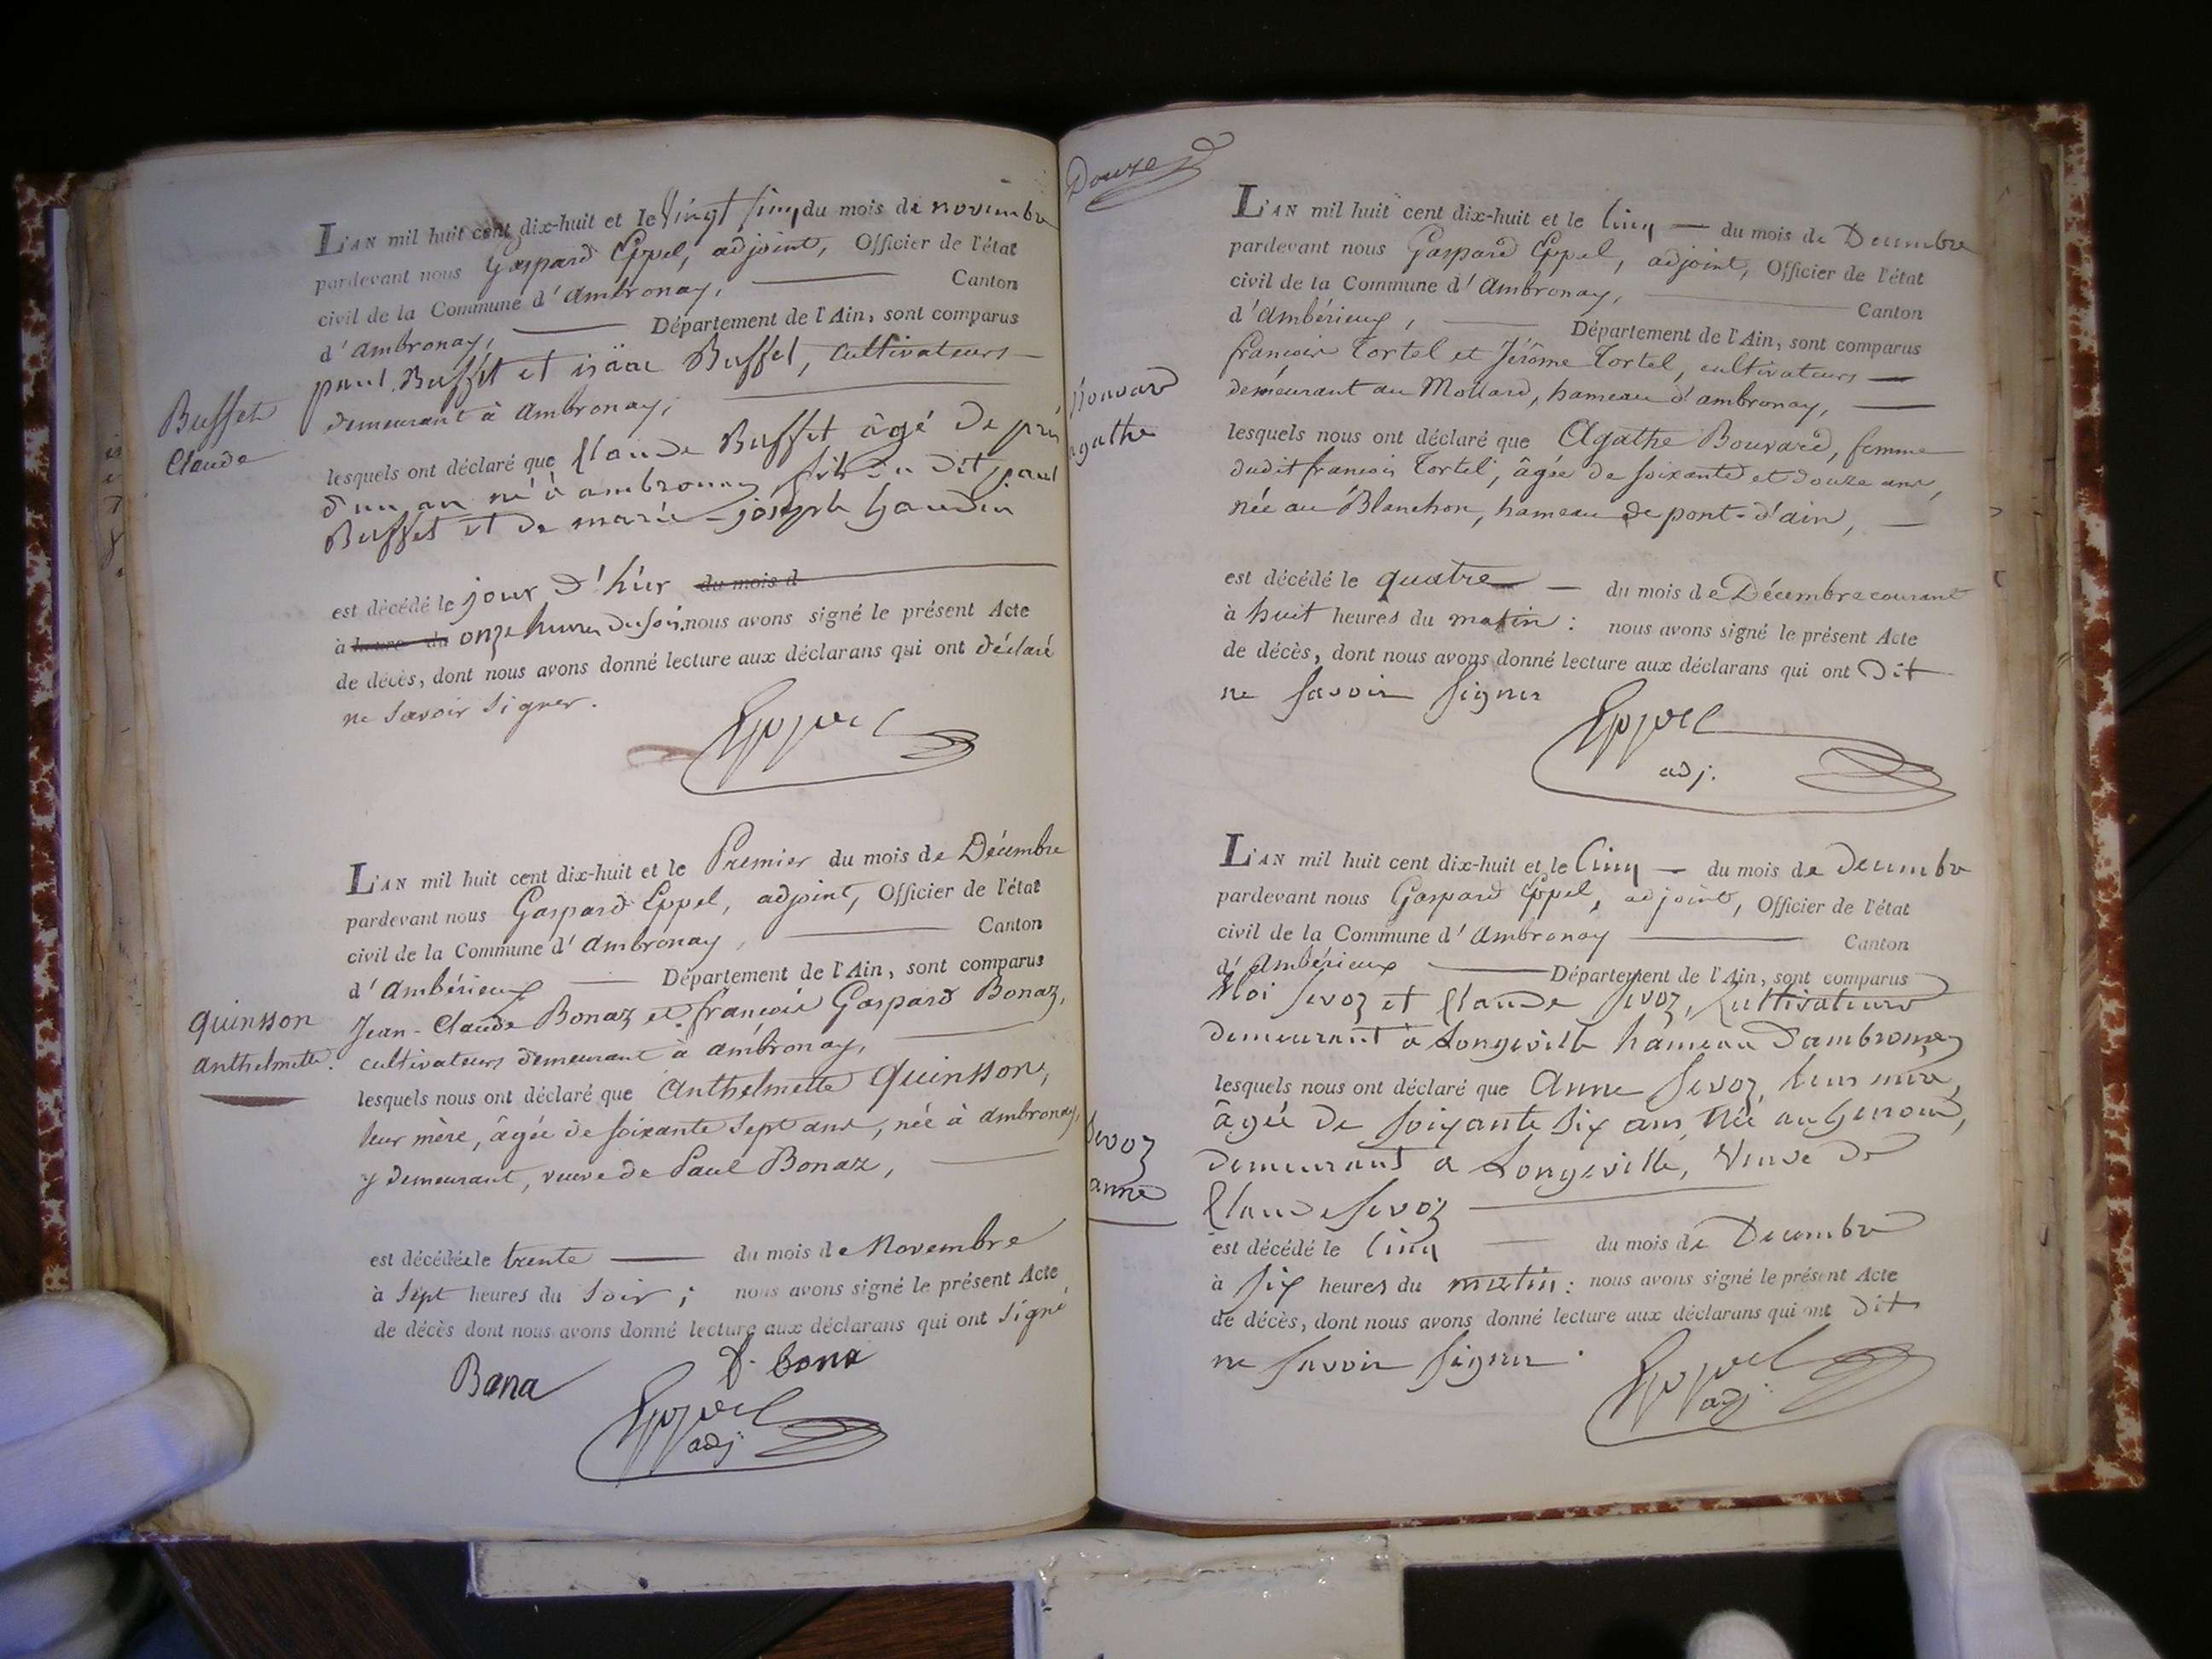 L'AN mil huit cent dix-huit et le Vingt cinq du mois de novembre
pardevant nous Gaspard Eppel, adjoint, Officier de l'état
civil de la Commune d'Ambronay, Canton
d'Ambronay, Département de l'Ain, sont comparus
paul Buffet et isäac Buffet, cultivateurs
demeurant à Ambronay,
Buffet
Claude
lesquels ont déclaré que Claude Buffet âgé de près
d'un an né à ambronay fils du dit paul
Buffet et de marie-joséph
est décédé le jour d'hier du mois d
à heure du onze heures du soir. nous avons signé le présent Acte
de décès, dont nous avons donné lecture aux déclarans qui ont déclaré
ne savoir signer.
Eppel
L'AN mil huit cent dix-huit et le Premier du mois de Décembre
pardevant nous Gaspard Eppel, adjoint, Officier de l'état
civil de la Commune d'Ambronay, Canton
d'Ambérieux Département de l'Ain, sont comparus
Quinsson
Anthelmette.
Jean-Claude Bonaz et françois Gaspard Bonaz,
cultivateurs demeurant à Ambronay,
lesquels nous ont déclaré que Anthelmette Quinsson,
leur mère, âgée de soixante sept ans, née à Ambronay,
y demeurant, veuve de Paul Bonaz,
est décédée le trente du mois de Novembre
à Sept heures du Soir; nous avons signé le présent Acte
de décès dont nous avons donné lecture aux déclarans qui ont signé
Bona bona
Eppel
adj
Douze
L'AN mil huit cent dix-huit et le Cinq du mois de Decembre
pardevant nous Gaspard Eppel, adjoint, Officier de l'état
civil de la Commune d'Ambronay, Canton
d'Ambérieux, Département de l'Ain, sont comparus
françois Tortel et Jérôme Tortel, cultivateurs
demeurant au Mollard, hameau d'ambronay,
Bouvard
agathe
lesquels nous ont déclaré que Agathe Bouvard, femme
dudit françois Tortel, âgée de soixante et douze ans,
née au Blanchon, hameau de pont-d'ain,
est décédé le quatre du mois de Décembre courant
à huit heures du matin: nous avons signé le présent Acte
de décès, dont nous avons donné lecture aux déclarans qui ont Dit
ne savoir signer
Eppel
adj.
L'AN mil huit cent dix-huit et le Cinq du mois de decembre
pardevant nous Gaspard Eppel, adjoint, Officier de l'état
civil de la Commune d'Ambronay Canton
d'Ambérieux Département de l'Ain, sont comparus
Sevoz et Claude Sevoz, Cultivateurs
demeurant à Longeville hameau d'ambronay
lesquels nous ont déclaré que Anne Sevoz, leur mère,
âgée de soixante six ans, Née au
demeurant a Longeville, Veuve de
Claude Sevoz
Sevoz
anne
est décédé le Cinq du mois de Decembre
à six heures du matin: nous avons signé le présent Acte
de décès, dont nous avons donné lecture aux déclarans qui ont Dit
ne savoir signer.
Eppel
adj